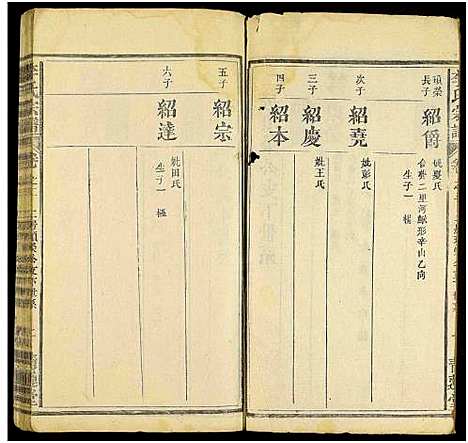 頊榮
長子
紹爵
妣夏氏
合葬二里河獅形辛山乙向
生子一
次子
紹堯
妣彭氏
三子
紹慶
妣王氏
四子
紹本
五子
紹宗
六子
紹達
妣田氏
生子一 極
李氏宗譜